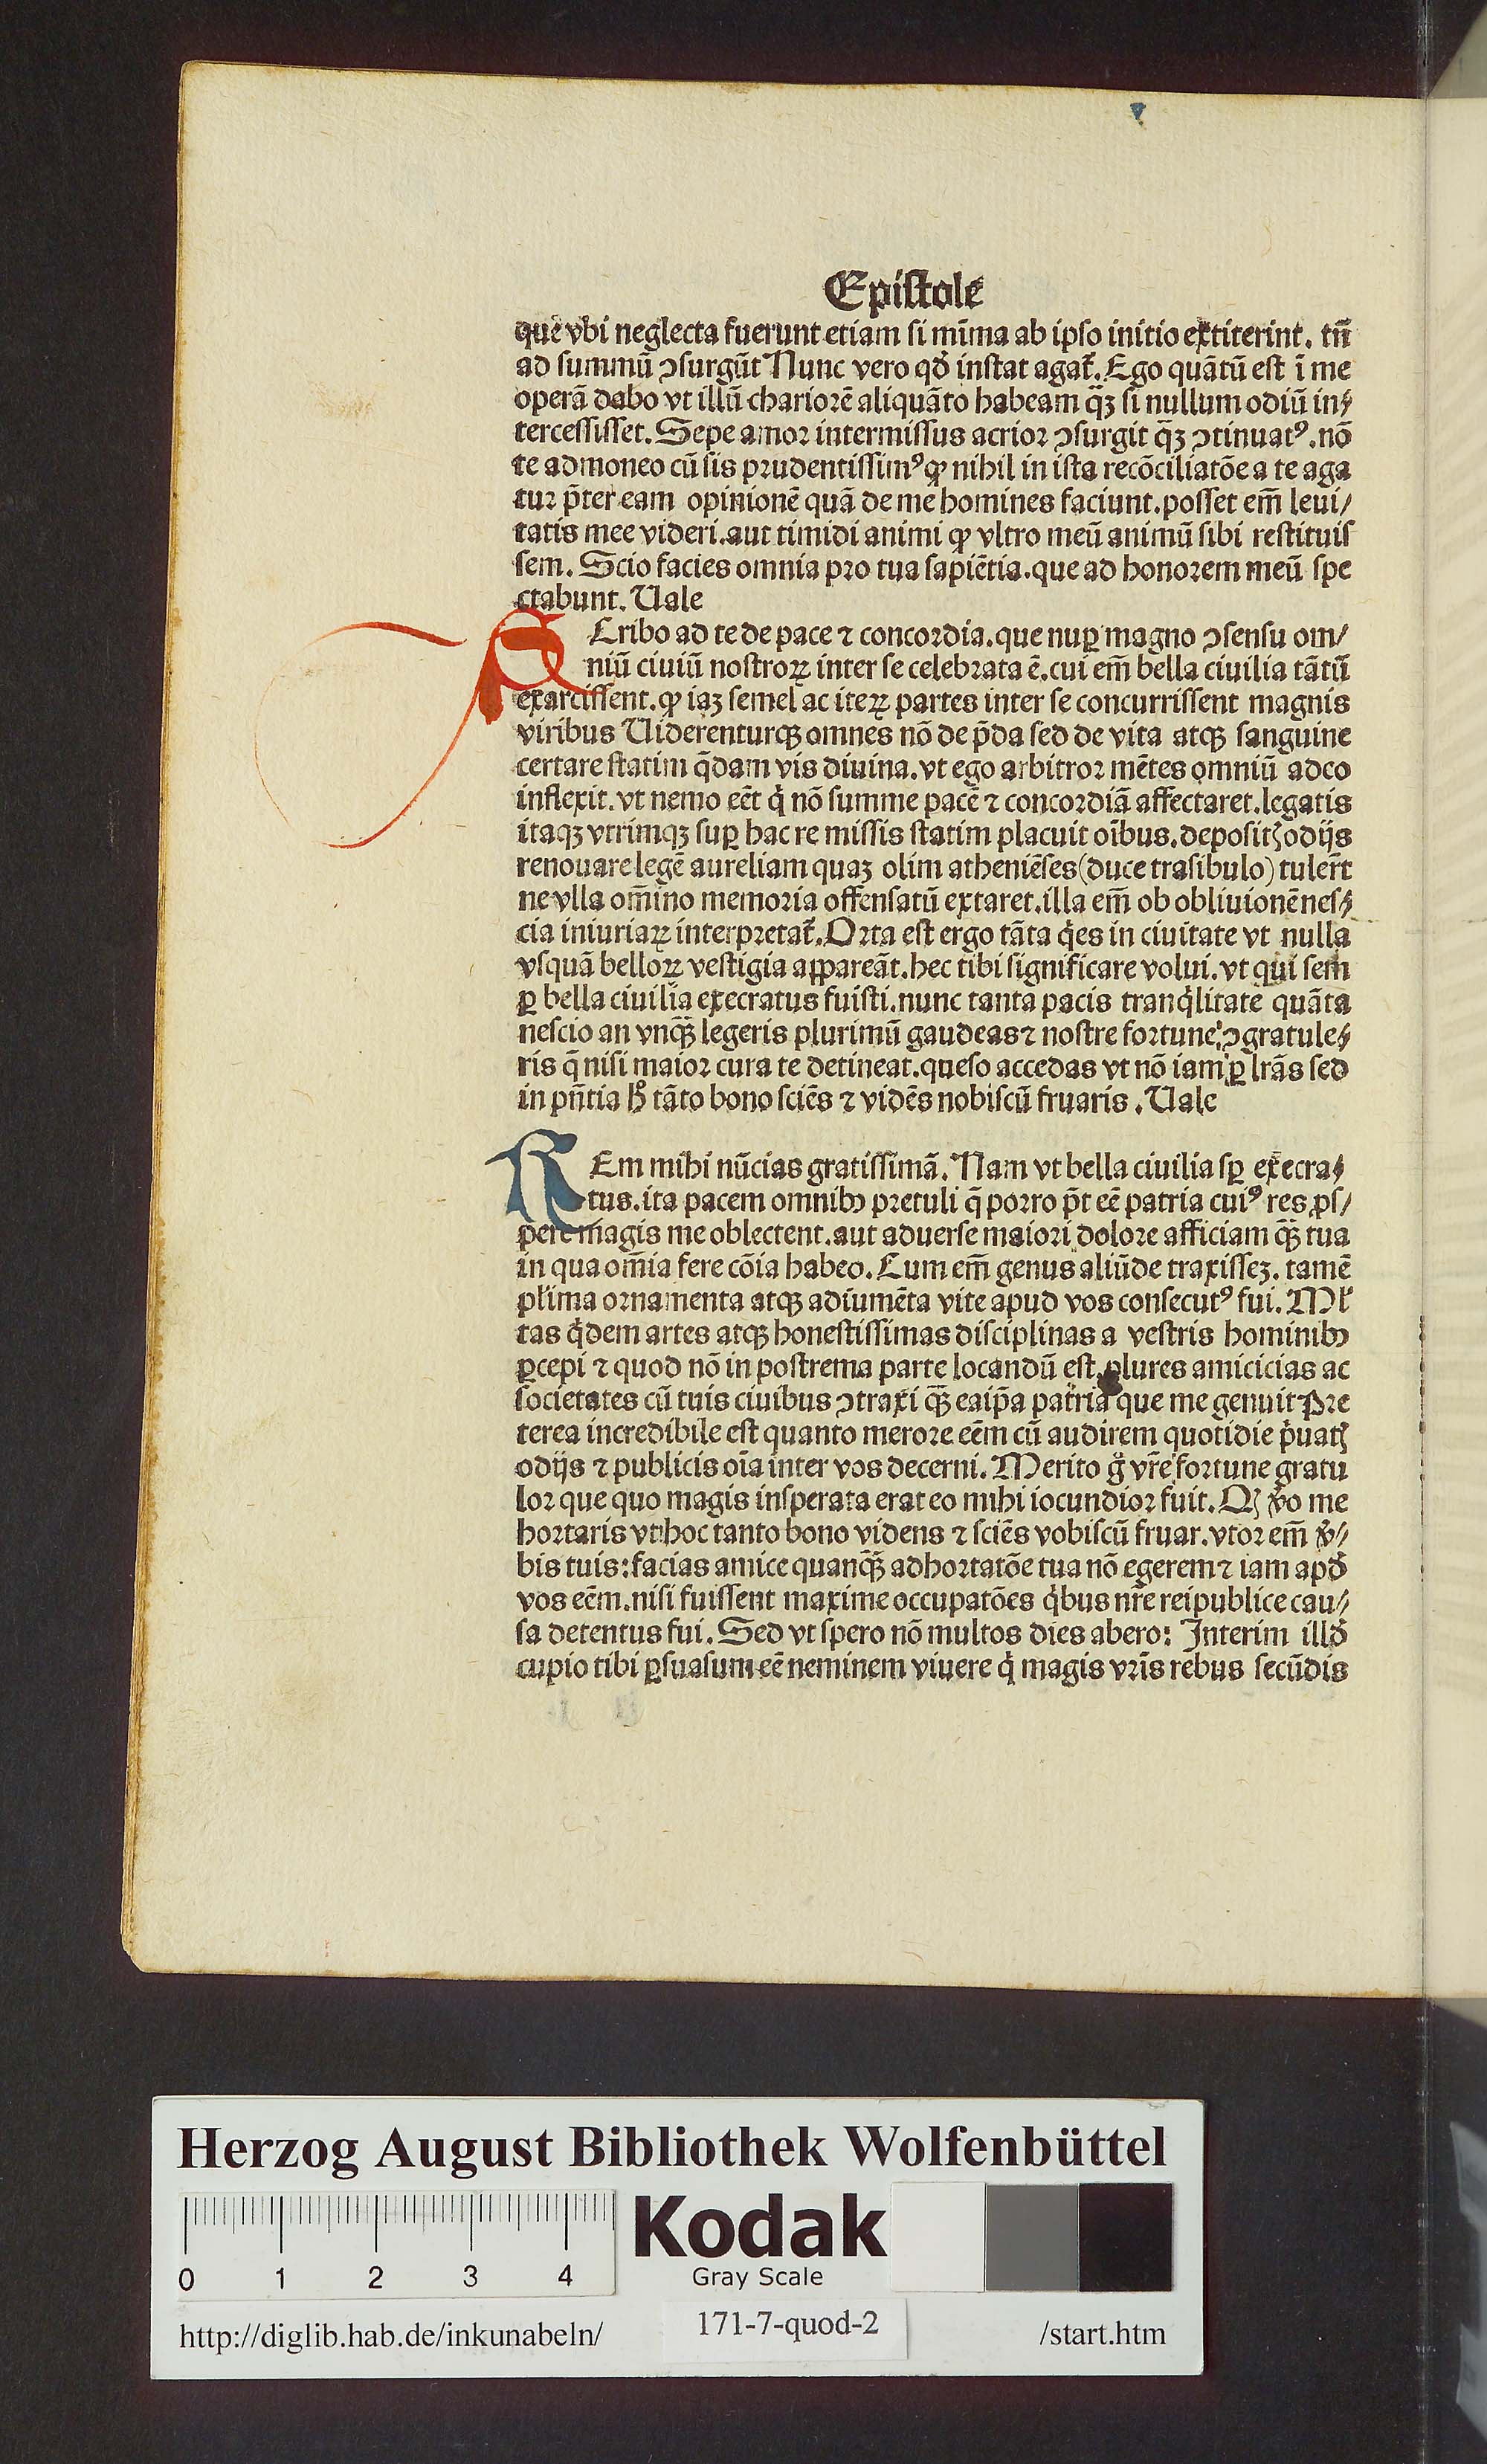 Epistole
que vbi neglecta fuerunt etiam si mīma ab ipso initio extiterint. tn̄
ad summū ↄsurgūt Nunc vero qđ instat agat᷑. Ego quātū est ī me
operā dabo vt illū chariorē aliquāto habeam q̄ꝫ si nullum odiū in⸗
tercessisset. Sepe amor intermissus acrior ↄsurgit q̄ꝫ ↄtinuatꝰ. nō
te admoneo cū sis prudentissimꝰ ꝙ nihil in ista recōciliatōe a te aga
tur p̄ter eam opinionē quā de me homines faciunt. posset em̄ leui/
tatis mee videri. aut timidi animi ꝙ vltro meū animū sibi restituis
sem. Scio facies omnia pro tua sapiētia. que ad honorem meū spe
ctabunt. Uale
SCribo ad te de pace ⁊ concordia. que nuꝑ magno ↄsensu om/
niū ciuiū nostroꝝ inter se celebrata ē. cui em̄ bella ciuilia tātū
exarcissent. ꝙ iaꝫ semel ac iteꝝ partes inter se concurrissent magnis
viribus Uiderenturqꝫ omnes nō de p̄da sed de vita atqꝫ sanguine
certare statim q̄dam vis diuina. vt ego arbitror mētes omniū adeo
inflexit. vt nemo eēt q̇ nō summe pacē ⁊ concordiā affectaret. legatis
itaqꝫ vtrimqꝫ suꝑ hac re missis statim placuit oībus. depositꝭ odijs
renouare legē aureliam quaꝫ olim atheniēses (duce trasibulo) tuler̄t
ne vlla om̄ino memoria offensatū extaret. illa em̄ ob obliuionē nes⸗
cia iniuriaꝝ interpretat᷑. Orta est ergo tāta q̇es in ciuitate vt nulla
vsquā belloꝝ vestigia appareāt. hec tibi significare volui. vt qui sem
ꝑ bella ciuilia execratus fuisti. nunc tanta pacis tranq̇litate quāta
nescio an vnqꝫ̄ legeris plurimū gaudeas ⁊ nostre fortune ↄgratule⸗
ris q̄ nisi maior cura te detineat. queso accedas vt nō iam ꝑ lr̄as sed
in pn̄tia hͦ tāto bono sciēs ⁊ vidēs nobiscū fruaris. Uale
REm mihi nūcias gratissimā. Nam vt bella ciuilia sꝑ execra⸗
tus. ita pacem omnibꝫ pretuli q̄ porro p̄t eē patria cuiꝰ res ꝓs/
pere magis me oblectent. aut aduerse maiori dolore afficiam qꝫ̄ tua
in qua om̄ia fere cōia habeo. Cum em̄ genus aliūde traxisseꝫ. tamē
pl̓ima ornamenta atqꝫ adiumēta vite apud vos consecutꝰ fui. Ml̓
tas q̇dem artes atqꝫ honestissimas disciplinas a vestris hominibꝫ
ꝑcepi ⁊ quod nō in postrema parte locandū est. plures amicicias ac
societates cū tuis ciuibus ↄtraxi qꝫ̄ ea ip̄a patria que me genuit Pre
terea incredibile est quanto merore eēm cū audirem quotidie p̓uatꝭ
odijs ⁊ publicis oīa inter vos decerni. Merito gͦ vr̄e fortune gratu
lor que quo magis insperata erat eo mihi iocundior fuit. Qꝫ v̓o me
hortaris vt hoc tanto bono videns ⁊ sciēs vobiscū fruar. vtor em̄ v̓/
bis tuis: facias amice quanqꝫ̄ adhortatōe tua nō egerem ⁊ iam apđ
vos eēm. nisi fuissent maxime occupatōes q̇bus nr̄e reipublice cau⸗
sa detentus fui. Sed vt spero nō multos dies abero: Interim illđ
cupio tibi ꝑsuasum eē neminem viuere q̇ magis vrīs rebus secūdis
Herzog August Bibliothek Wolfenbüttel
0 1 2 3 4
Kodak
Gray Scale
http://diglib.hab.de/inkunabeln/ 171-7-quod-2 /start.htm